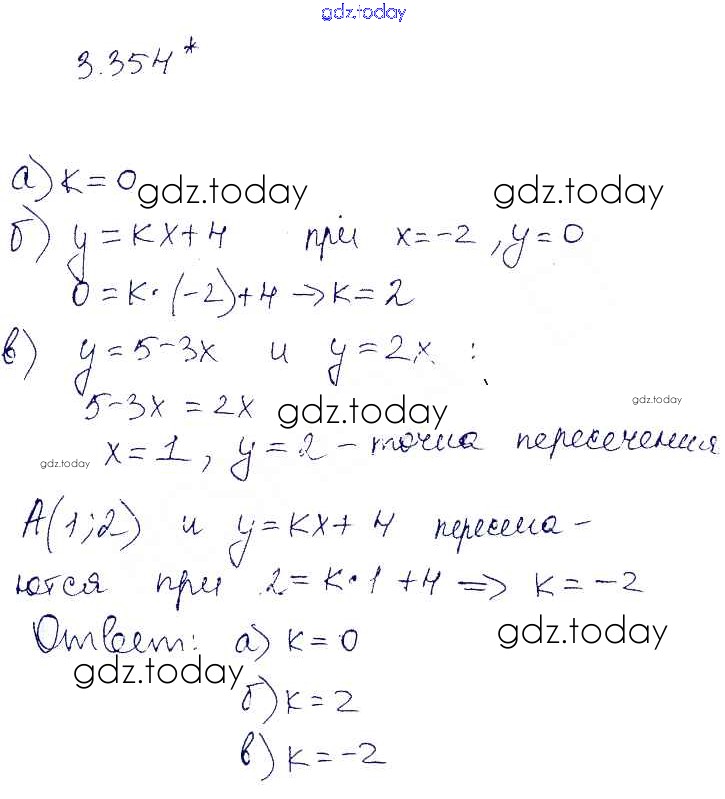 gdz.today
3.354*
а) K = 0 gdz.today gdz.today
б) y = KX + 4 при x = -2, y = 0
0 = K · (-2) + 4 → K = 2
в) y = 5 - 3x и y = 2x :
5 - 3x = 2x gdz.today gdz.today
gdz.today x = 1, y = 2 - точка пересечения
A(1; 2) и y = KX + 4 пересека-
ются при 2 = K · 1 + 4 => K = -2
Ответ: а) K = 0 gdz.today
gdz.today б) K = 2
в) K = -2